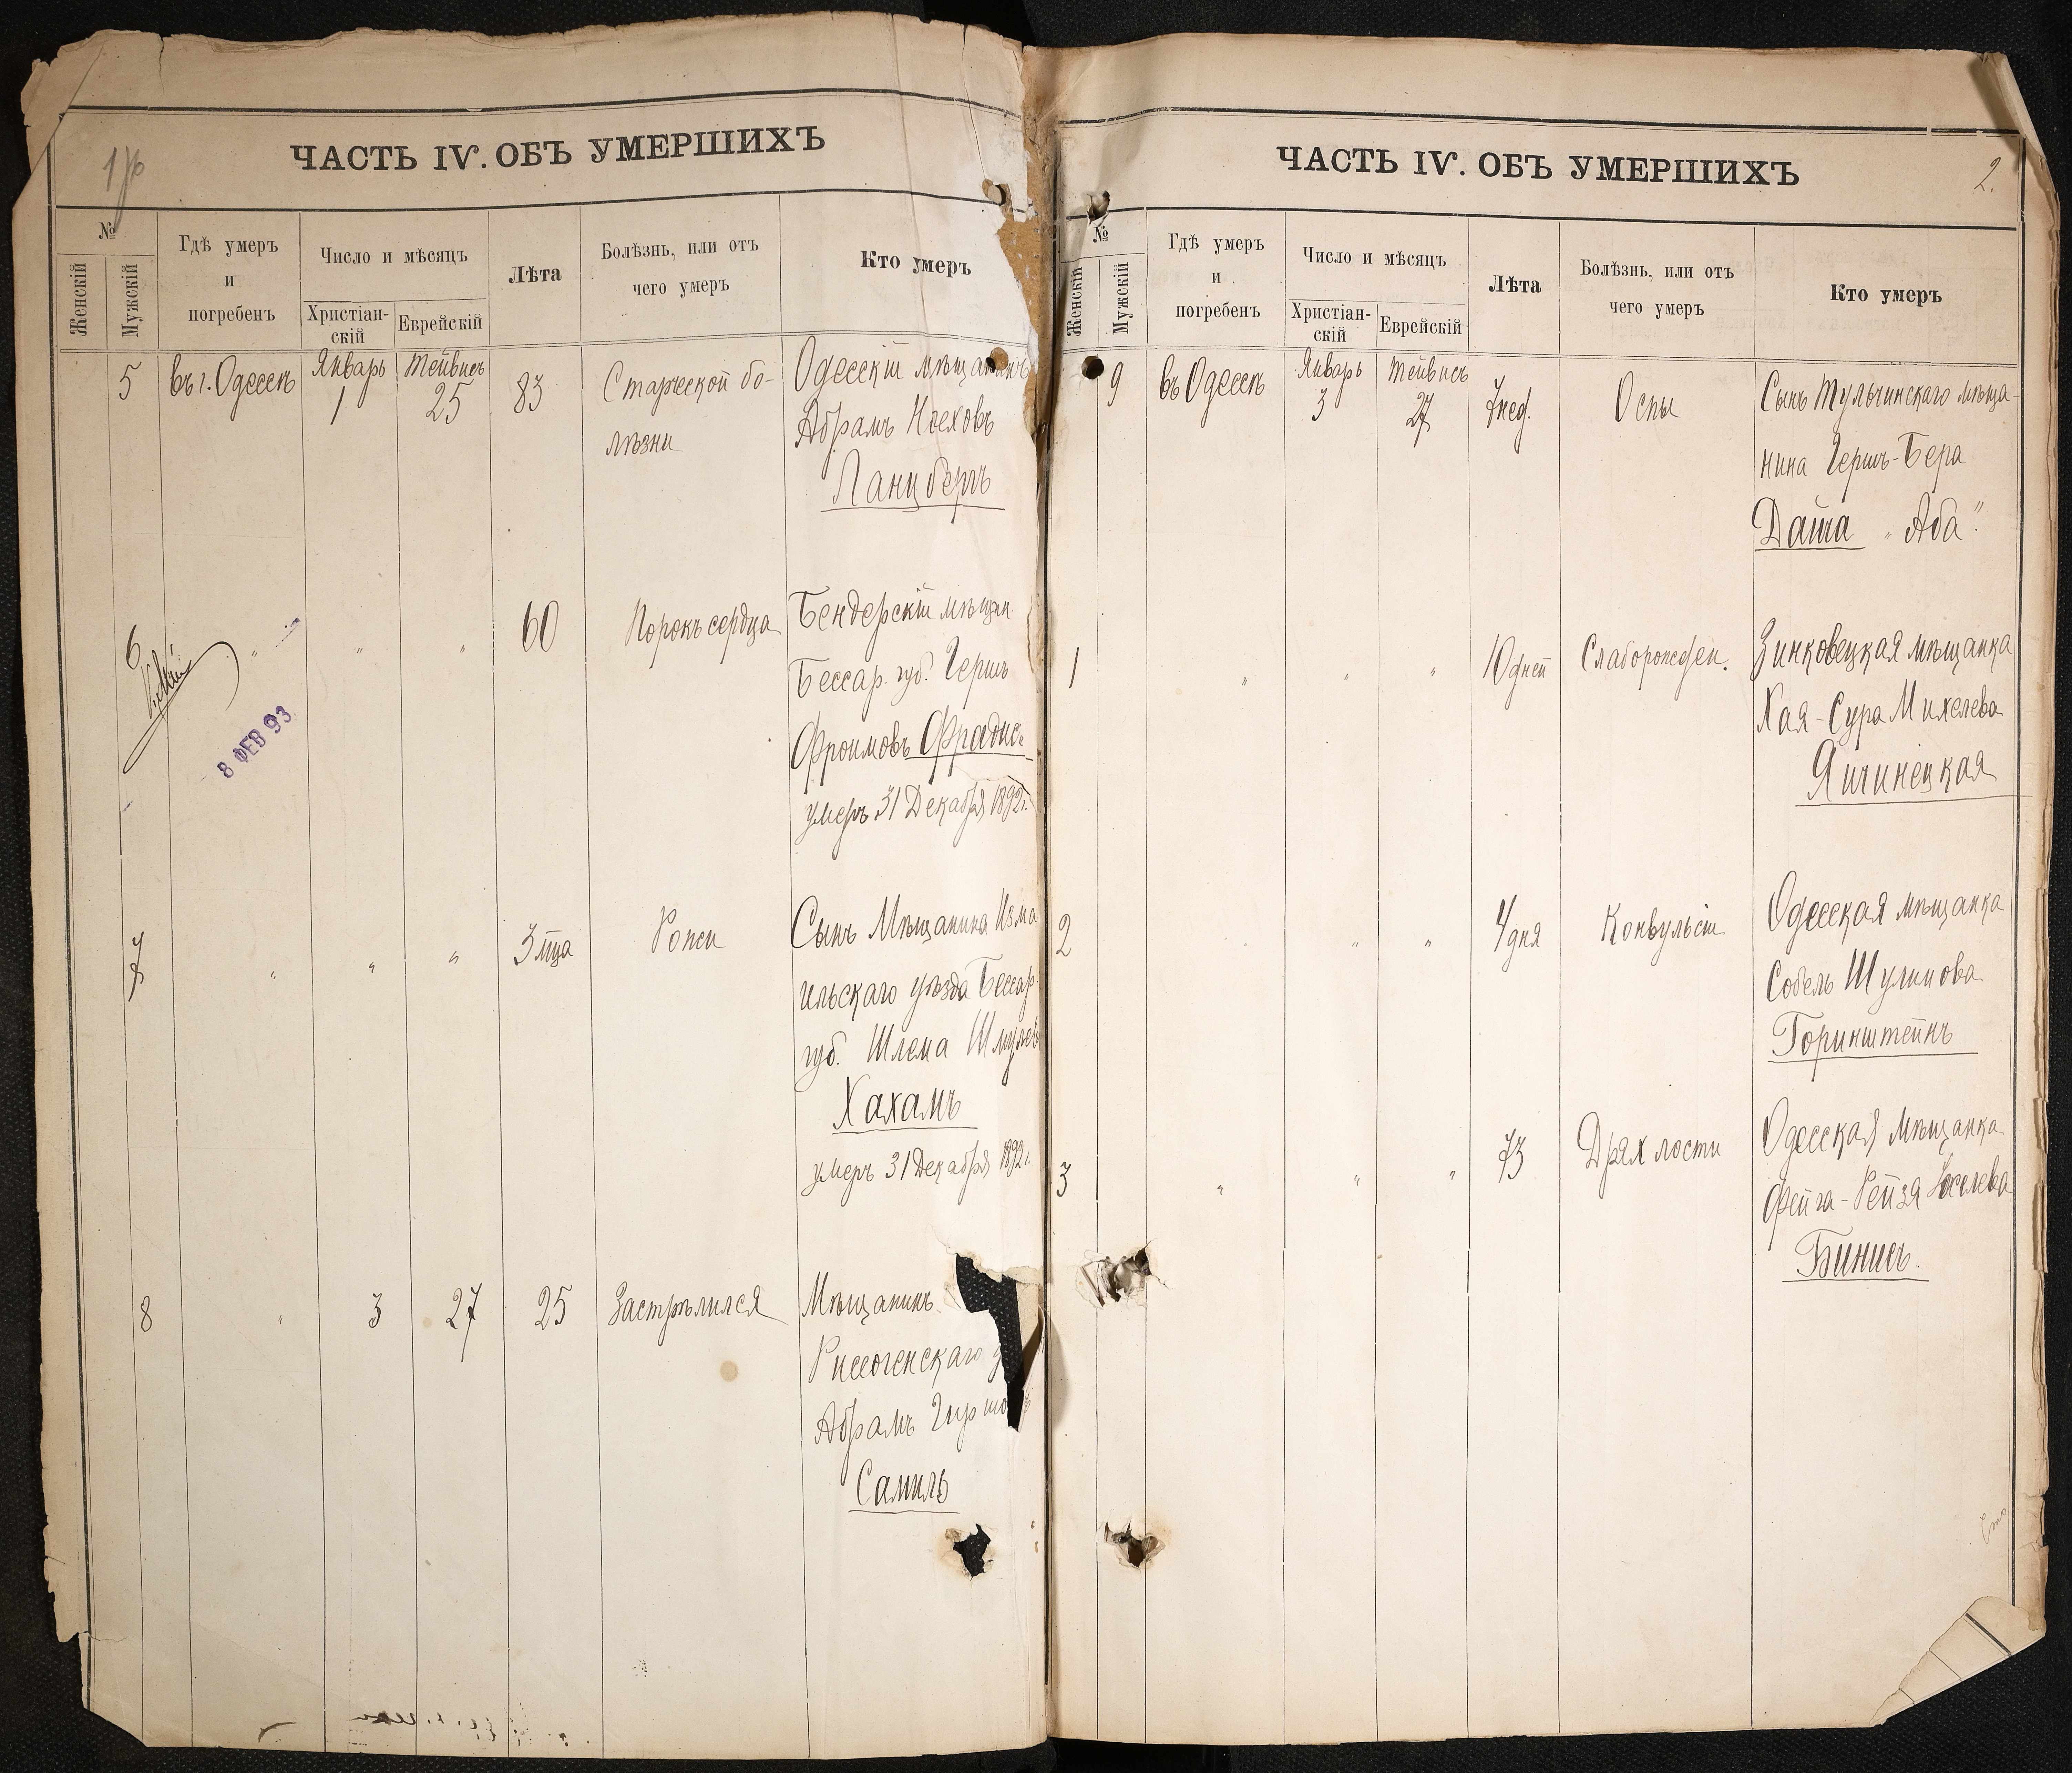 1
ЧАСТЬ IV. ОБЪ УМЕРШИХЪ
№
Женскій
Мужскій
Гдѣ умеръ
и
погребенъ
Число и мѣсяцъ
Христіан-
скій
Еврейскій
Лѣта
Болѣзнь, или отъ
чего умеръ
Кто умеръ
5
въ г. Одессѣ
Январь
1
Тейвисъ
25
83
Старческой бо-
лѣзни
Одесскій мѣщанинъ
Абрамъ Ноеховъ
Ланцбергъ
6
" " "
60
Порокъ сердца
Бендерскій мѣщан.
Бессар. губ. Гершъ
Фроимовъ Фрадис
умеръ 31 Декабря 1892 г.
8 ФЕВ 93
7
" " "
3 м-ца
Рожи
Сынъ Мѣщанина Изма
ильскаго уѣзда Бессар.
губ. Шлема Шмулев
Хахамъ
умеръ 31 Декабря 1892 г.
8
"
3
27
25
Застрѣлился
Мѣщанинъ
Абрамъ
Самиль
ЧАСТЬ IV. ОБЪ УМЕРШИХЪ
2.
№
Женскій
Мужскій
Гдѣ умеръ
и
погребенъ
Число и мѣсяцъ
Христіан-
скій
Еврейскій
Лѣта
Болѣзнь, или отъ
чего умеръ
Кто умеръ
9
въ Одессѣ
Январь
3
Тейвисъ
27
7 нед.
Оспы
Сынъ Тульчинскаго мѣща-
нина Гершъ-Бера
Даша "Аба".
1
" " "
10 дней
Слаборожден.
Зинковецкая мѣщанка
Хая-Сура Михелева
Яичинецкая
2
" " "
4 дня
Конвульсіи
Одесская мѣщанка
Собель Шулимова
Горинштейнъ
3
" " "
73
Дряхлости
Одесская Мѣщанка
Фейга-Рейзя Іоселева
Бинисъ.